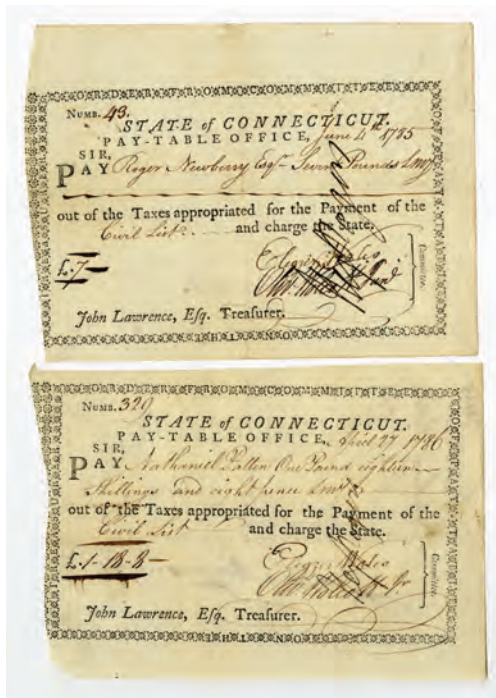 ORDER FROM COMMITTEE
OF PAY-TABLE
ON THE
TREASURER
NUMB. 43.
STATE of CONNECTICUT.
PAY-TABLE OFFICE, June 4th 1785
SIR,
PAY Roger Newberry Esqr. Seven Pounds Lmy
out of the Taxes appropriated for the Payment of the
Civil List and charge the State.
£.7
Eliezer Wales
Committee.
John Lawrence, Esq. Treaſurer.
ORDER FROM COMMITTEE
OF PAY-TABLE
ON THE
TREASURER
NUMB. 329
STATE of CONNECTICUT.
PAY-TABLE OFFICE, April 27 1786
SIR,
PAY Nathaniel Patten One Pound eighteen
Shillings and eight pence Lmy
out of the Taxes appropriated for the Payment of the
Civil List and charge the State.
£.1-18-8
Eliezer Wales
Oliv. Wolcott Jr
Committee.
John Lawrence, Eſq. Treaſurer.